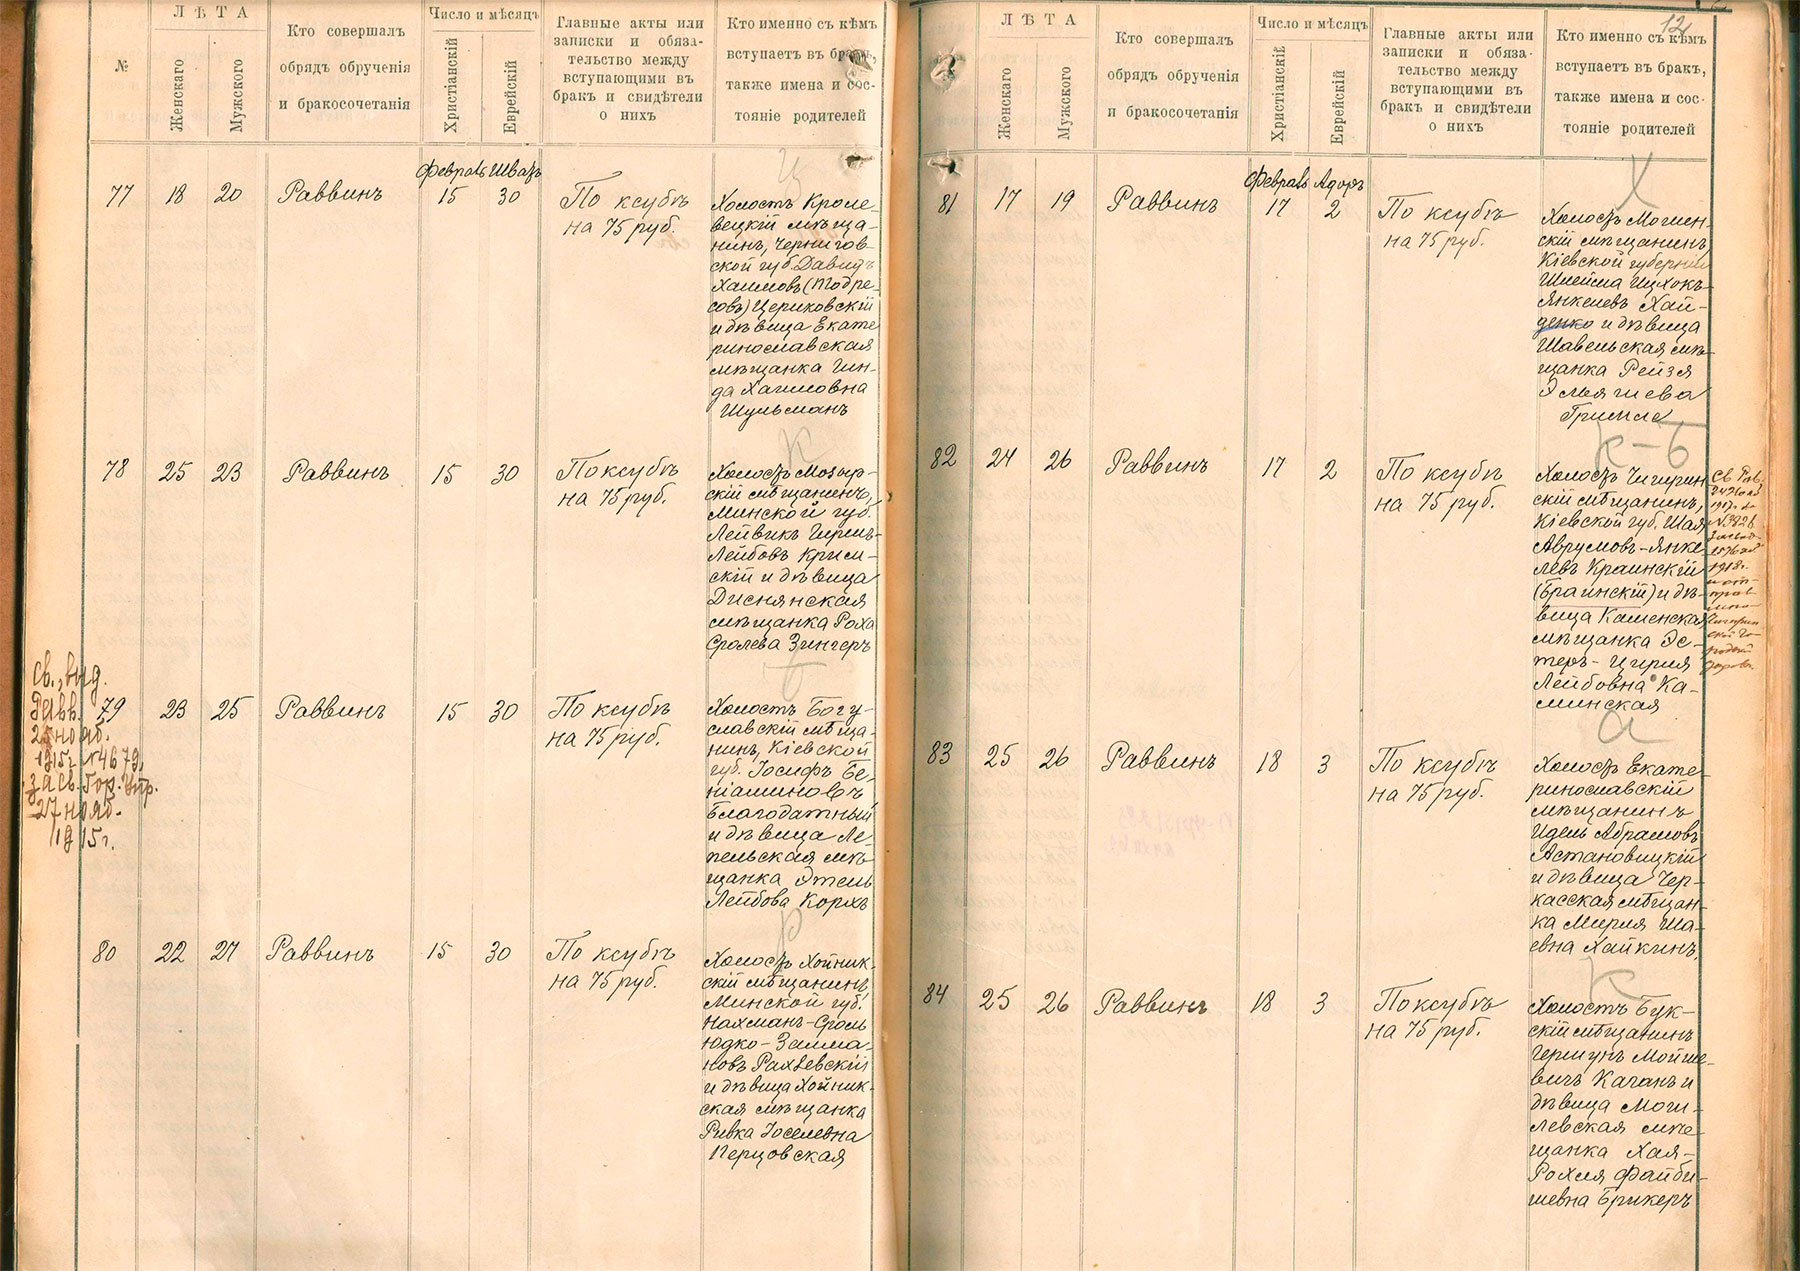 №
ЛѢТА
Женскаго
Мужского
Кто совершалъ
обрядъ обрученія
и бракосочетанія
Число и мѣсяцъ
Христіанскій
Еврейскій
Главные акты или
записки и обяза-
тельство между
вступающими въ
бракъ и свидѣтели
о нихъ
Кто именно съ кѣмъ
вступаетъ въ бракъ,
также имена и сос-
тояніе родителей
Февраль Шватъ
77 18 20 Раввинъ 15 30
По ксубѣ
на 75 руб.
Холостъ Кроле-
вецкій мѣща-
нинъ, Чернигов-
ской губ. Давидъ
Хаимовъ (Тодре-
совъ) Цериковскій
и дѣвица Екате
ринославская
мѣщанка Гин-
да Хаимовна
Шульманъ
К
78 25 23 Раввинъ 15 30
По ксубѣ
на 75 руб.
Холостъ Мозыр-
скій мѣщанинъ,
Минской губ.
Лейвикъ Гиршъ-
Лейбовъ Крим-
скій и дѣвица
Диснянская
мѣщанка Роха
Сролева Зингеръ
Б
св., выд.
Равв.
25 нояб.
1915 г. №4679,
засв. Гор. Упр.
27 нояб.
1915 г.
79 23 25 Раввинъ 15 30
По ксубѣ
на 75 руб.
Холостъ Богу-
славскій мѣща-
нинъ, Кіевской
губ. Іосифъ Бе-
ніаминовъ
Благодатный
и дѣвица Ле-
пельская мѣ-
щанка Этель
Лейбова Коржъ
Р
80 22 27 Раввинъ 15 30
По ксубѣ
на 75 руб.
Холостъ Хойник-
скій мѣщанинъ,
Минской губ.
Нахманъ-Сроль
Юдко-Залма-
новъ Рахлевскій
и дѣвица Хойник-
ская мѣщанка
Ривка Іоселевна
Перцовская
12
ЛѢТА
Женскаго
Мужского
Кто совершалъ
обрядъ обрученія
и бракосочетанія
Число и мѣсяцъ
Христіанскій
Еврейскій
Главные акты или
записки и обяза-
тельство между
вступающими въ
бракъ и свидѣтели
о нихъ
Кто именно съ кѣмъ
вступаетъ въ бракъ,
также имена и сос-
тояніе родителей
Х
Февраль Адоръ
81 17 19 Раввинъ 17 2
По ксубѣ
на 75 руб.
Холостъ Мошен-
скій мѣщанинъ
Кіевской губерніи
Шлейма Ицхокъ-
Янкелевъ Хай-
денко и дѣвица
Шавельская мѣ-
щанка Рейзя
Эльяшева
К-Б
82 24 26 Раввинъ 17 2
По ксубѣ
на 75 руб.
Холостъ Чигирин
скій мѣщанинъ,
Кіевской губ. Шая
Аврумовъ-Янке
левъ Краинскій
(Браинскій) и дѣ-
вица Каменская
мѣщанка Эс-
теръ-Цирля
Лейбовна Ка-
минская
Св. Рав.
1918 г.
а
83 25 26 Раввинъ 18 3
По ксубѣ
на 75 руб.
Холостъ Екате-
ринославскій
мѣщанинъ
Идель Абрамовъ
Астановицкій
и дѣвица Чер-
касская мѣщан-
ка Мирля Ша-
евна Хайкинъ.
К
84 25 26 Раввинъ 18 3
По ксубѣ
на 75 руб.
Холостъ Бук-
скій мѣщанинъ
Гершунъ Мойше-
вичъ Каганъ и
дѣвица Моги-
левская мѣ-
щанка Хая-
Рохля Файби-
шевна Брикеръ